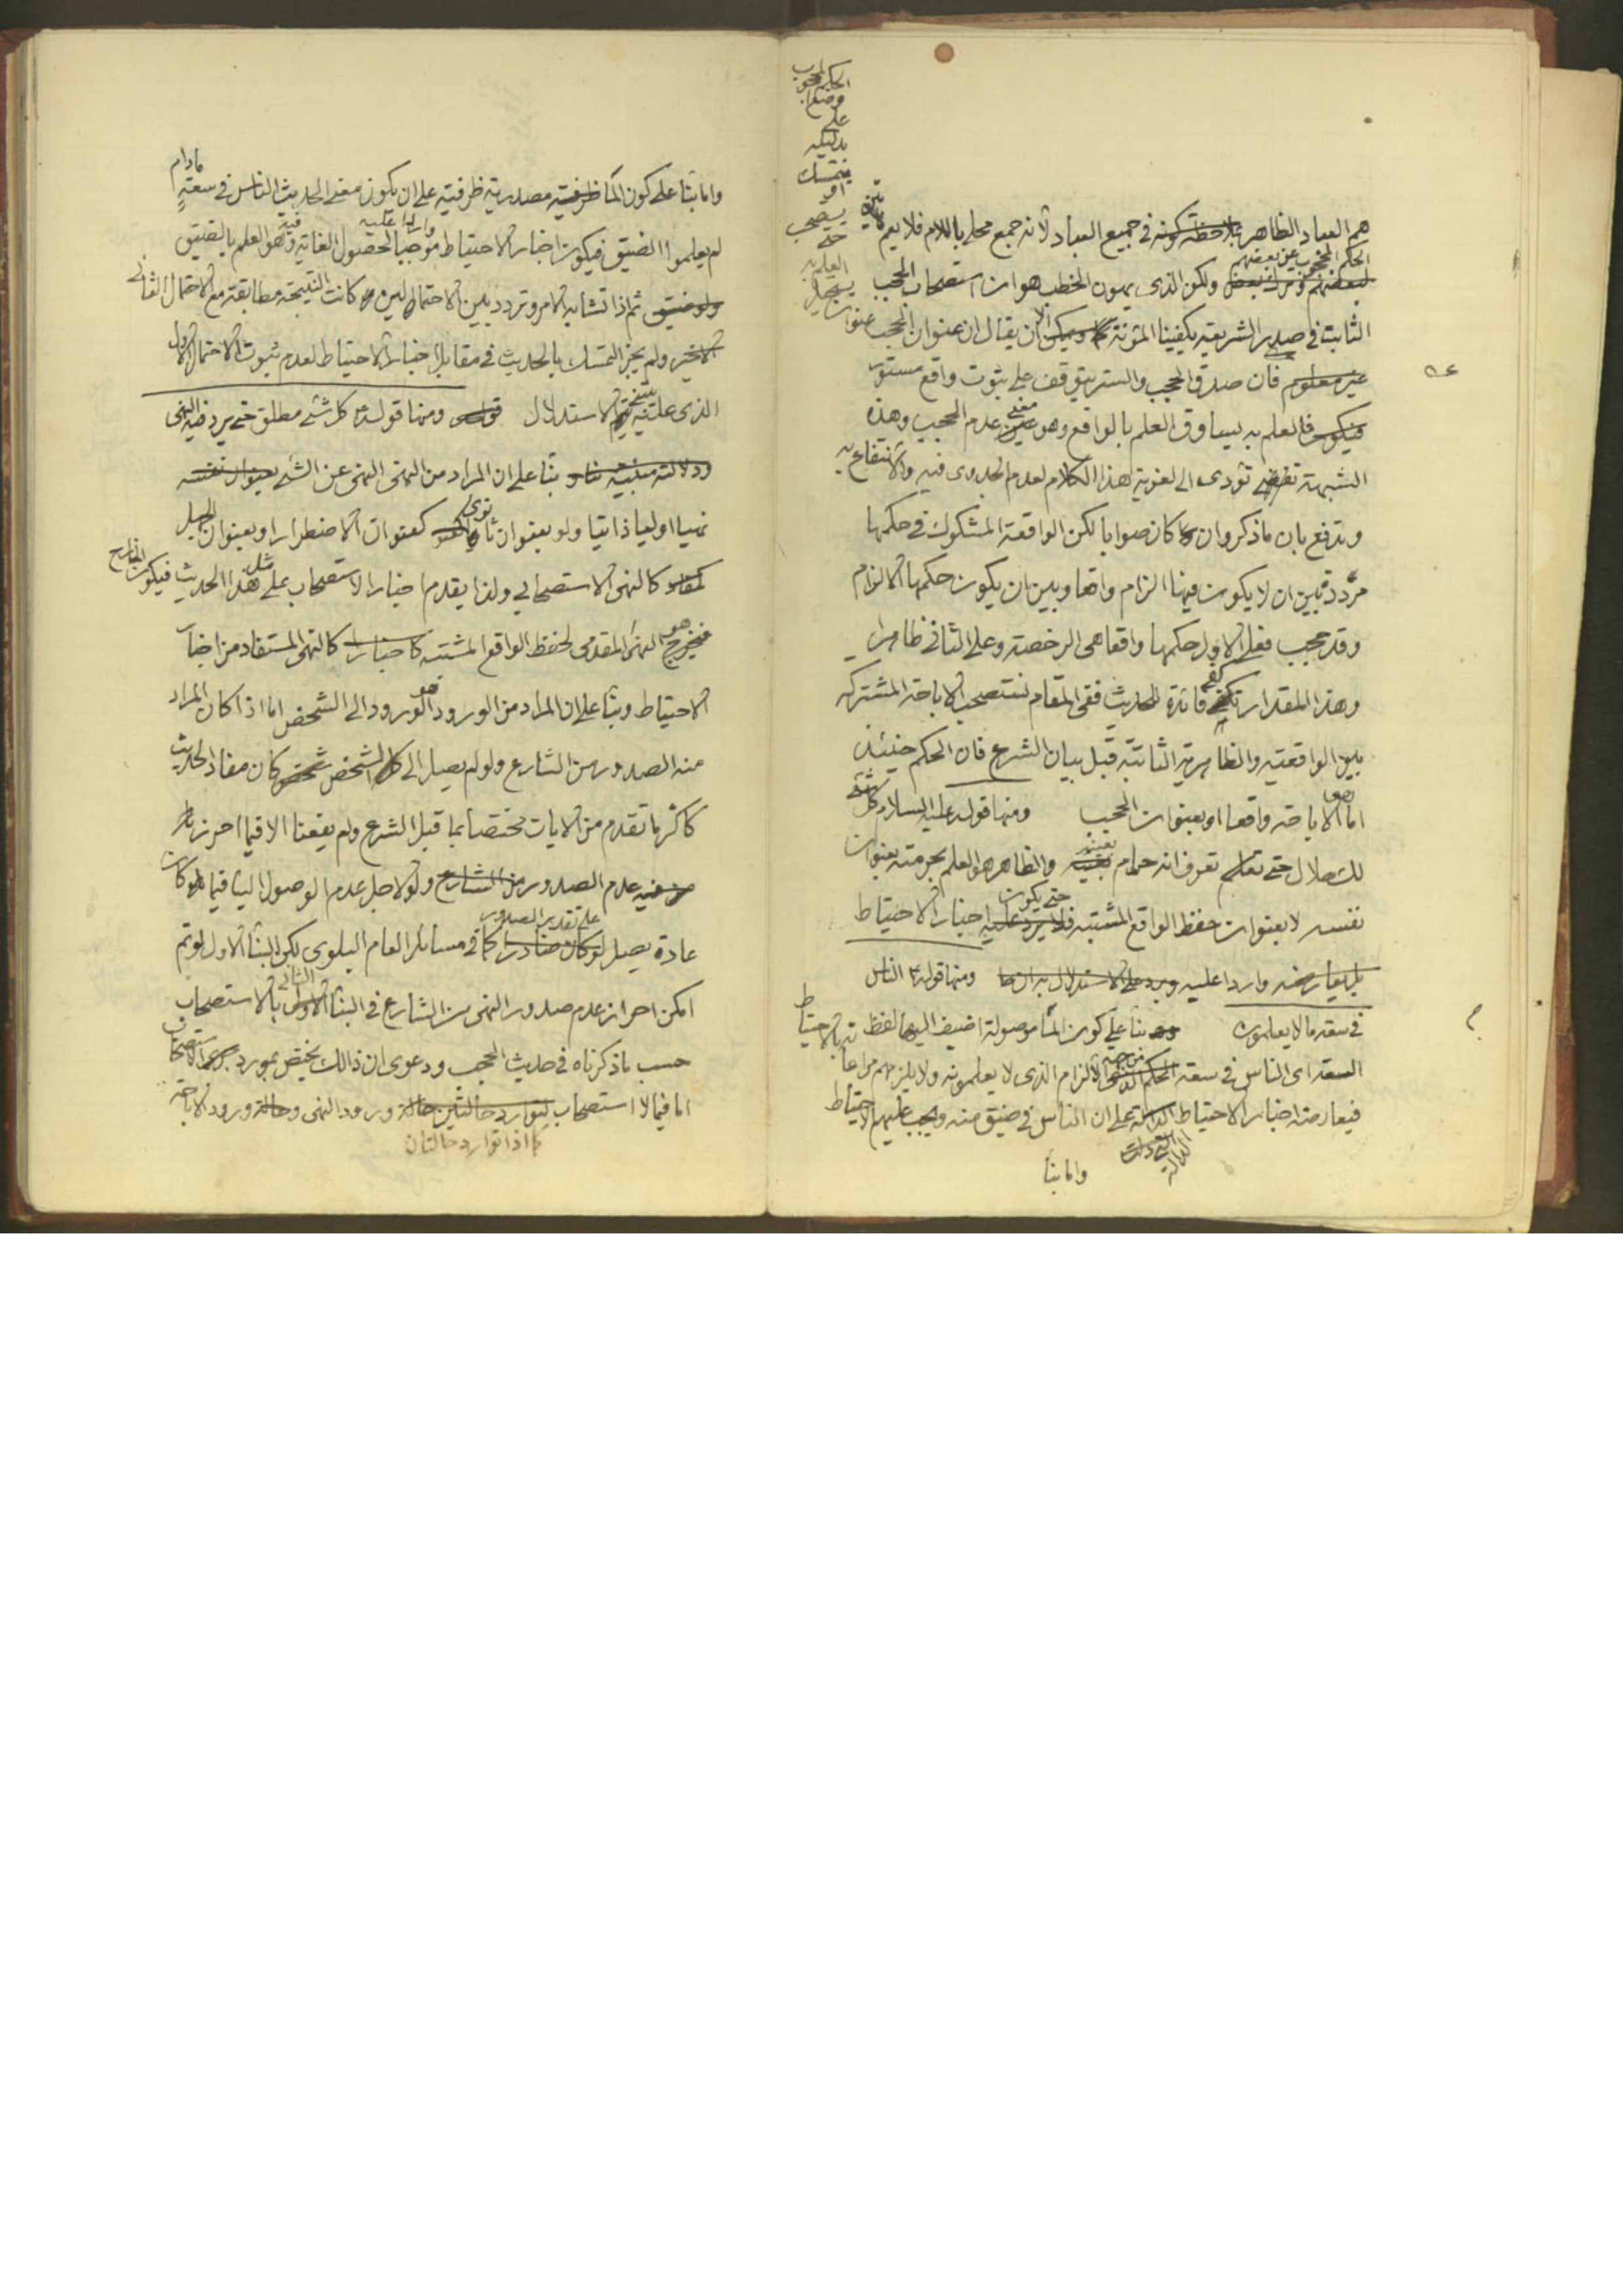 هم العباد الظاهر بملاحظة كونه في جميع العباد لأنه جمع محلى باللام فلا يعم
الحكم المحجوب عن بعضهم
لبعضهم دون بعض ولكن الذي يهون الخطب هو ان استصحاب الحجب
الثابت في صدر الشريعة يكفينا المئونة الا ان يقال ان عنوان الحجب عنوان
غير معلوم فان صدق الحجب والستر يتوقف على ثبوت واقع مستور
فيكون فالعلم به يساوق العلم بالواقع وهو معنى عدم الحجب وهذه
الشبهة تؤدى الى لغوية هذا الكلام لعدم الجدوى فيه والانتفاع به
وتدفع بان ما ذكر وان كان صوابا لكن الواقعة المشكوك في حكمها
مرددة بين ان لا يكون فيها الزام واقعا وبين ان يكون حكمها الالزام
وقد حجب فعلى الاول حكمها واقعا هى الرخصة وعلى الثاني ظاهرا
وهذا المقدار كفى فائدة للحديث ففي المقام نستصحب الاباحة المشتركة
بين الواقعية والظاهرية الثابتة قبل بيان الشرع فان الحكم حينئذ
اما الاباحة واقعا او بعنوان الحجب ومنها قوله عليه السلام كل شئ
لك حلال حتى تعرف انه حرام بعينه والظاهر هو العلم بحرمته بعنوان
نفسه لا بعنوان حفظ الواقع المشتبه حتى يكون اخبار الاحتياط
بل يعارضه واردا عليه ويرد على الاستدلال به ان ما ومنها قوله ع الناس
في سعة ما لا يعلمون بناء على كون الما موصولة اضيف اليها لفظ
السعة اى الناس في سعة من جهة الالزام الذي لا يعلمونه ولا يلزمهم مراعاته بالاحتياط
فيعارضه اخبار الاحتياط الدالة على ان الناس في ضيق منه ويجب عليهم الاحتياط
واما بناء
الحكم المحجوب
على
بدليله
يتمسك
او
يستصحب
حتى
العلم به
واما بناء على كون الما ظرفية مصدرية ظرفية على ان يكون معنى الحديث الناس في سعة مادام
لم يعلموا الضيق فيكون اخبار الاحتياط واردا عليه موجبا لحصول الغاية فيه وهو العلم بالضيق
ولو ضيق ثم اذا تشابه الامر وتردد بين الاحتمالين كانت النتيجة مطابقة مع الاحتمال الثاني
الاخير ولم يجز التمسك بالحديث في مقابل اخبار الاحتياط لعدم ثبوت الاحتمال الاول
الذي عليه يبتنى الاستدلال ومنها قوله ع كل شئ مطلق حتى يرد فيه النهى
ودلالته مبنية بناء على ان المراد من النهى النهى عن الشئ بعنوان نفسه
نهيا اوليا ذاتيا ولو بعنوان ثانوى كعنوان الاضطرار او بعنوان الجهل
كالنهى الاستصحابي ولذا يقدم اخبار الاستصحاب على مثل هذا الحديث فيكون الخارج
هو النهى المقدمى لحفظ الواقع المشتبه كاخبارا كالنهى المستفاد من اخبار
الاحتياط وبناء على ان المراد من الورود هو الورود الى الشخص اما اذا كان المراد
منه الصدور من الشارع ولو لم يصل الى الشخص كان مفاد الحديث
كاكثر ما تقدم من الآيات مختصا بما قبل الشرع ولم ينفعنا الا فيما احرز
فيه عدم الصدور من الشارع ولو لاجل عدم الوصول الينا فيما كان
عادة يصل على تقدير الصدور لو كان صادرا كما في مسائل العام البلوى لكن البناء الاول لو تم
امكن احراز عدم صدور النهى من الشارع في البناء الثاني بالاستصحاب
حسب ما ذكرناه في حديث الحجب ودعوى ان ذالك يختص بمورد جريان الاستصحاب
اما فيما لا استصحاب لتوارد حالتين حالة ورود النهى وحالة ورود الاباحة
كما اذا توارد حالتان